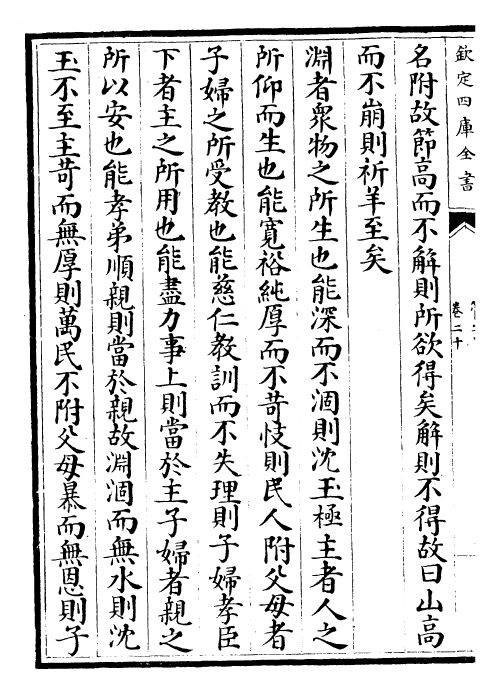 欽定四庫全書
卷二十
名附故節高而不解則所欲得矣解則不得故曰山高
而不崩則祈羊至矣
淵者衆物之所生也能深而不涸則沈玉極主者人之
所仰而生也能寛裕純厚而不苛忮則民人附父母者
子婦之所受教也能慈仁教訓而不失理則子婦孝臣
下者主之所用也能盡力事上則當於主子婦者親之
所以安也能孝弟順親則當於親故淵涸而無水則沈
玉不至主苛而無厚則萬民不附父母暴而無恩則子